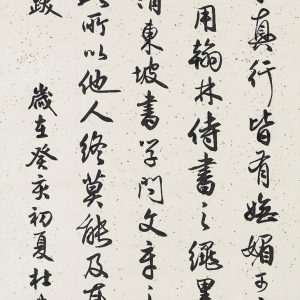 真行皆有嫵媚可
用翰林侍書之繩墨
謂東坡書學問文章之
所以他人終莫能及
跋 歲在癸亥初夏杜